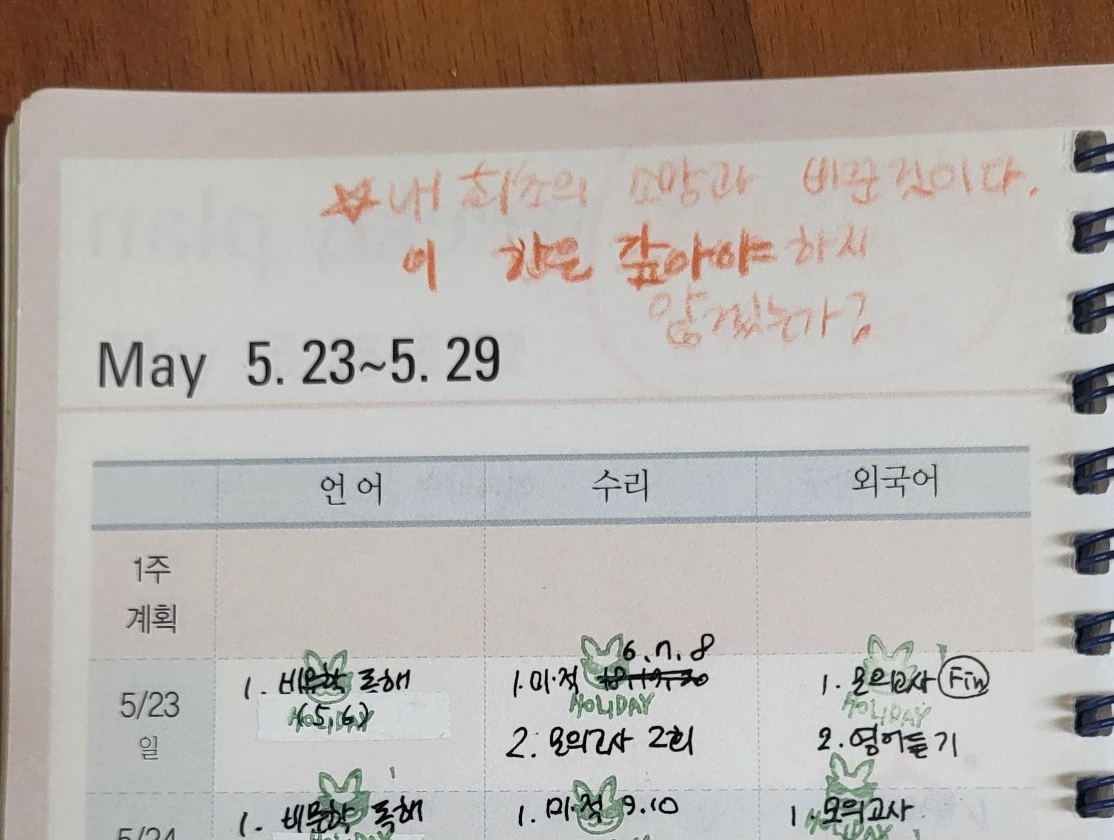 ☆ 내 최초의 소망과 바꾼 것이다.
이 값은 갚아야 하지
않겠는가?
May 5. 23~5. 29
언어 수리 외국어
1주
계획
6, 7, 8
5/23 1. 비문학 독해 1. 미·적 18, 19, 20 1. 모의고사 Fin
일 (5, 6) HOLIDAY HOLIDAY HOLIDAY
2. 모의고사 2회 2. 영어듣기
5/24 1. 비문학 독해 1. 미·적 9. 10 1 모의고사
HOLIDAY